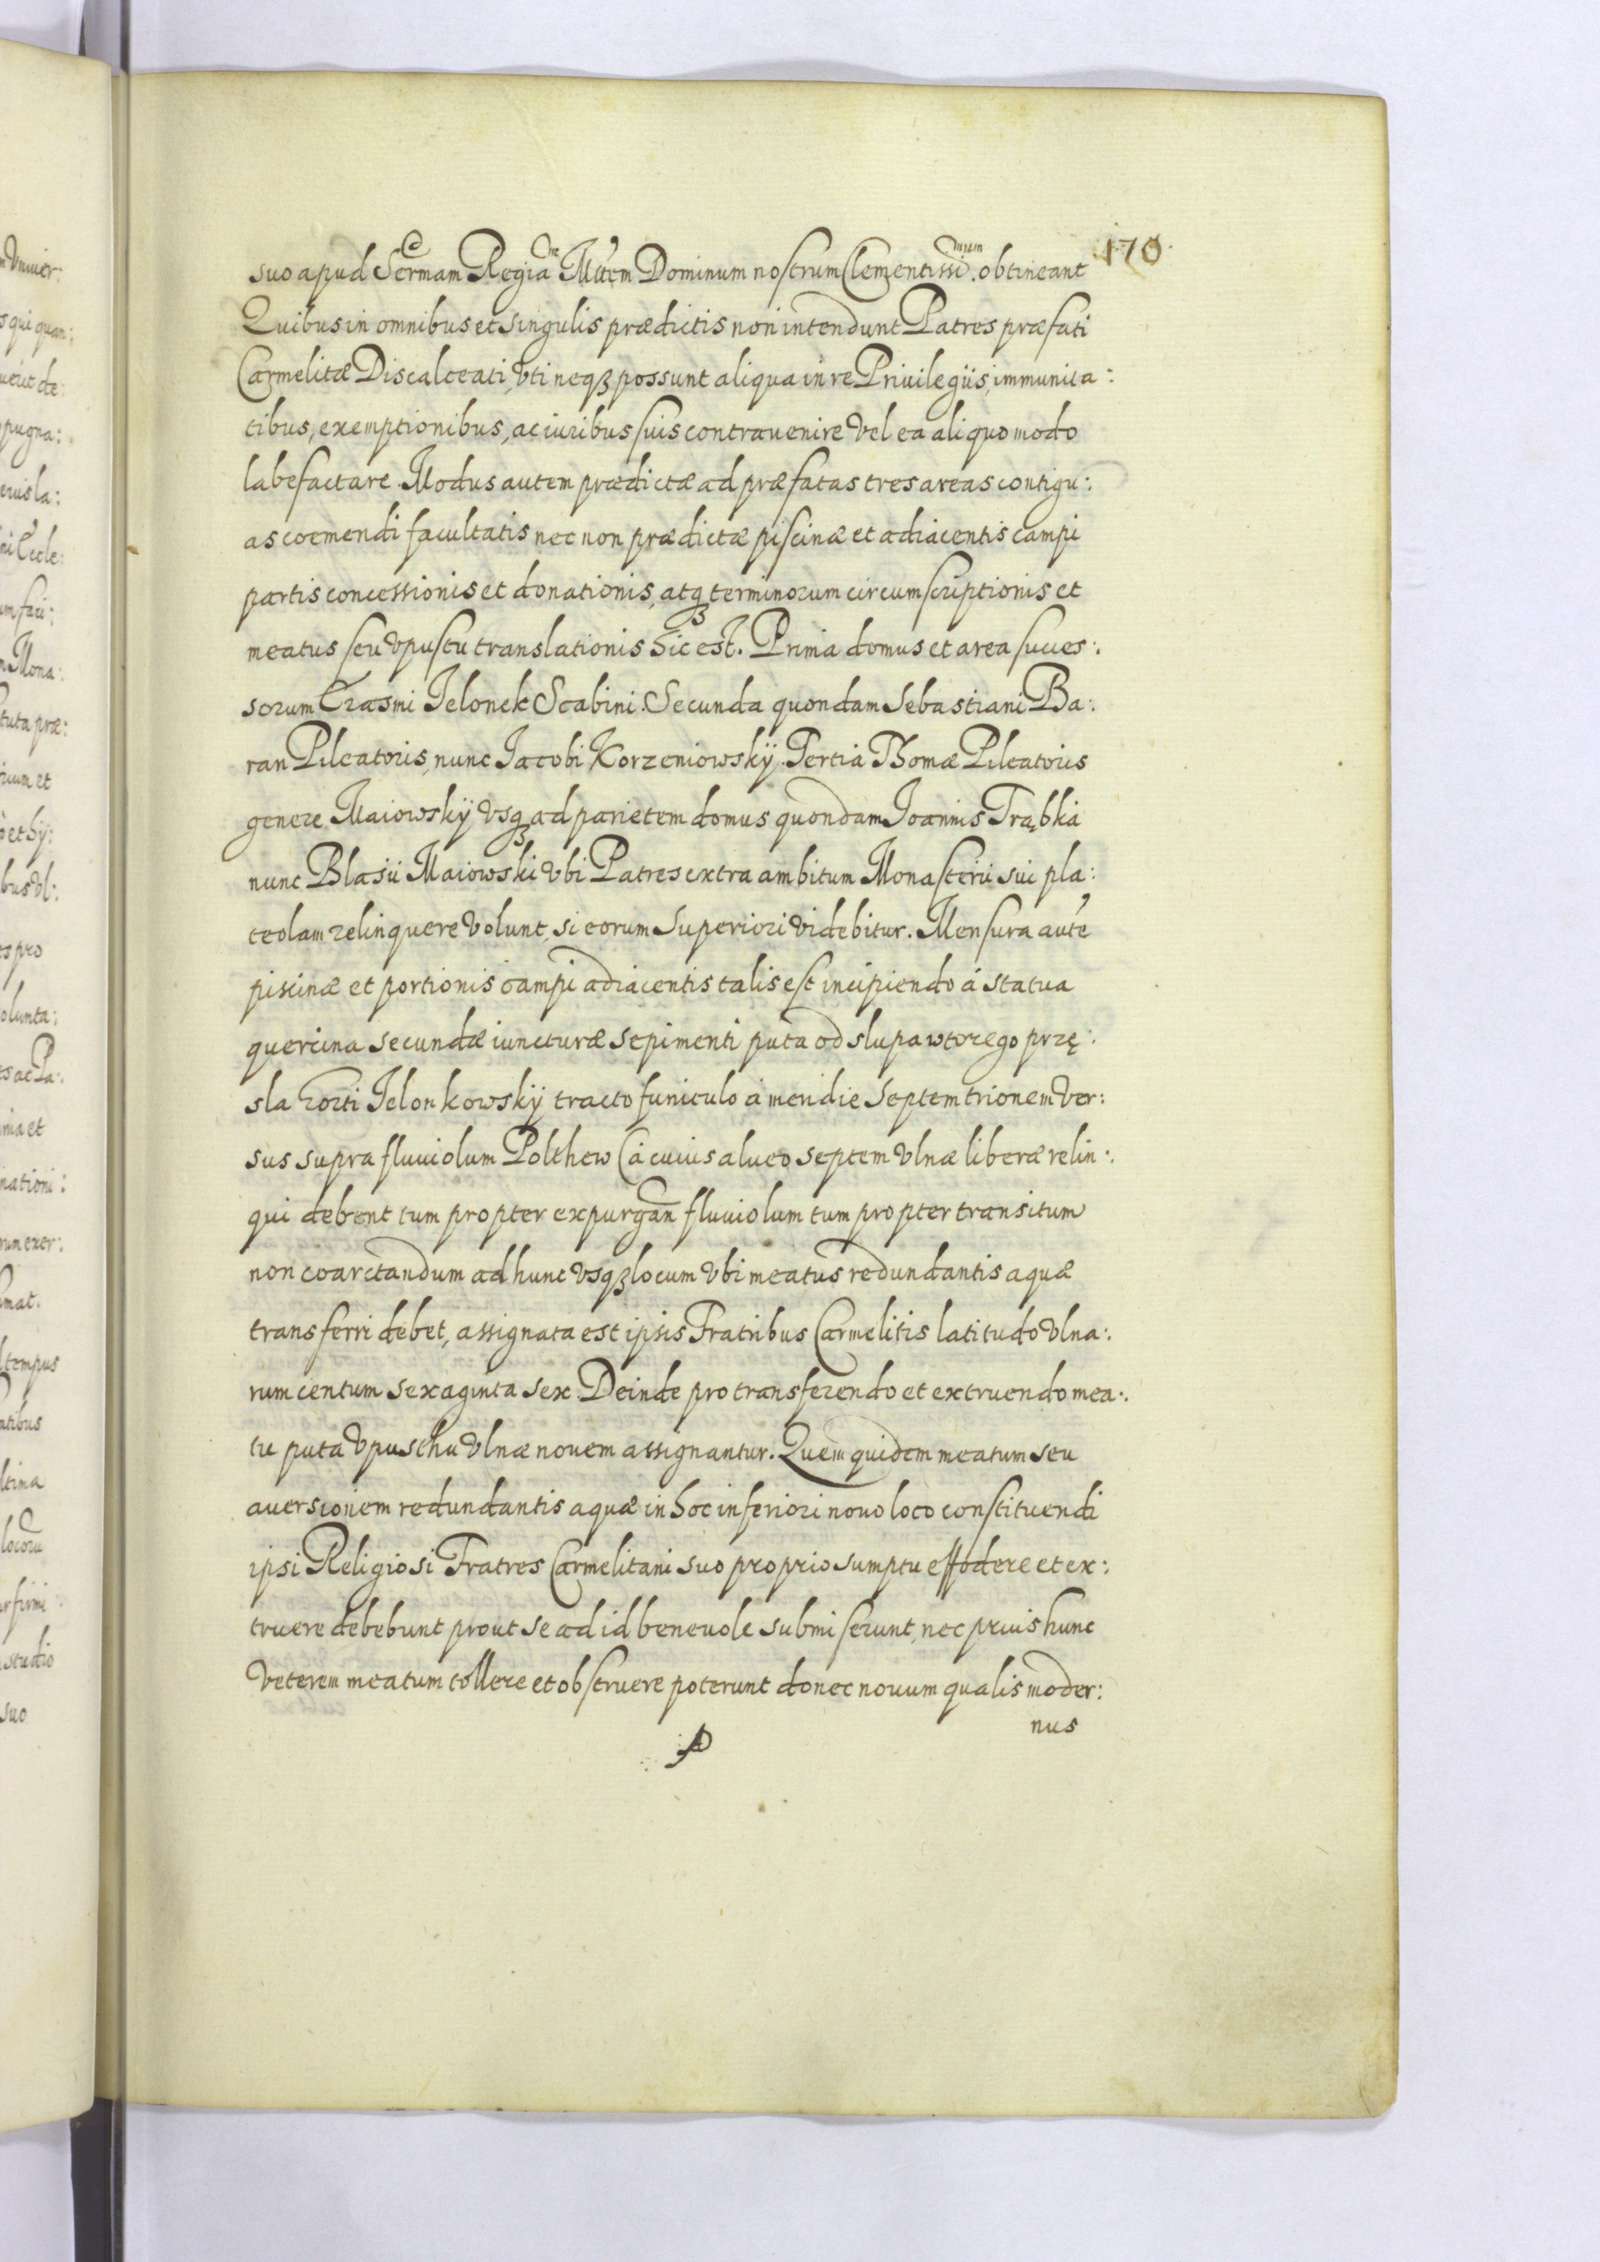 170
suo apud Sermam Regiam Mttem Dominum nostrum Clementissi. obtineant
Quibus in omnibus et singulis prædictis non intendunt Patres præfati
Carmelitæ Discalceati, vti neqȝ possunt aliqua in re Priuilegiis, immunita:
tibus, exemptionibus, ac iuribus suis contrauenire vel ea aliquo modo
labefactare. Modus autem prædictæ ad præfatas tres areas contigu:
as coemendi facultatis nec non prædictæ piscinæ et adiacentis campi
partis concessionis et donationis, atqȝ terminorum circumscriptionis et
meatus seu vpustu translationis hic est. Prima domus et area succes:
sorum Erasmi Jelonek Scabini. Secunda quondam Sebastiani Ba:
ran Pileatoris, nunc Jacobi Korzeniowskÿ. Tertia Thomæ Pileatoris
genere Maiowskÿ vsqȝ ad parietem domus quondam Ioannis Trąbka
nunc Blasii Maiowski vbi Patres extra ambitum Monasterii sui pla:
teolam relinquere volunt, si eorum Superiori videbitur. Mensura autē
piscinæ et portionis campi adiacentis talis est incipiendo á statua
quercina secundæ iuncturæ sepimenti puta od slupa wtorego przę:
sla horti Jelonkowskÿ tracto funiculo á meridie Septemtrionem ver:
sus supra fluuiolum Polthew (á cuius alueo septem vlnæ liberæ relin:
qui debent tum propter expurgan̄ fluuiolum tum propter transitum
non coarctandum ad hunc vsqȝ locum vbi meatus redundantis aquæ
transferri debet, assignata est ipsis Fratribus Carmelitis latitudo vlna:
rum centum sexaginta sex. Deinde pro transferendo et extruendo mea:
tu puta vpusthu vlnæ nouem assignantur. Quem quidem meatum seu
auersionem redundantis aquæ in hoc inferiori nouo loco constituendi
ipsi Religiosi Fratres Carmelitani suo proprio sumptu effodere et ex:
truere debebunt prout se ad id beneuole submiserunt, nec prius hunc
veterem meatum tollere et obstruere poterunt donec nouum qualis moder:
nus